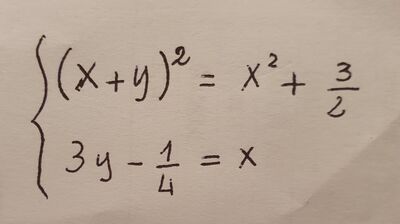 (x+y)² = x² + 3/2
3y - 1/4 = x